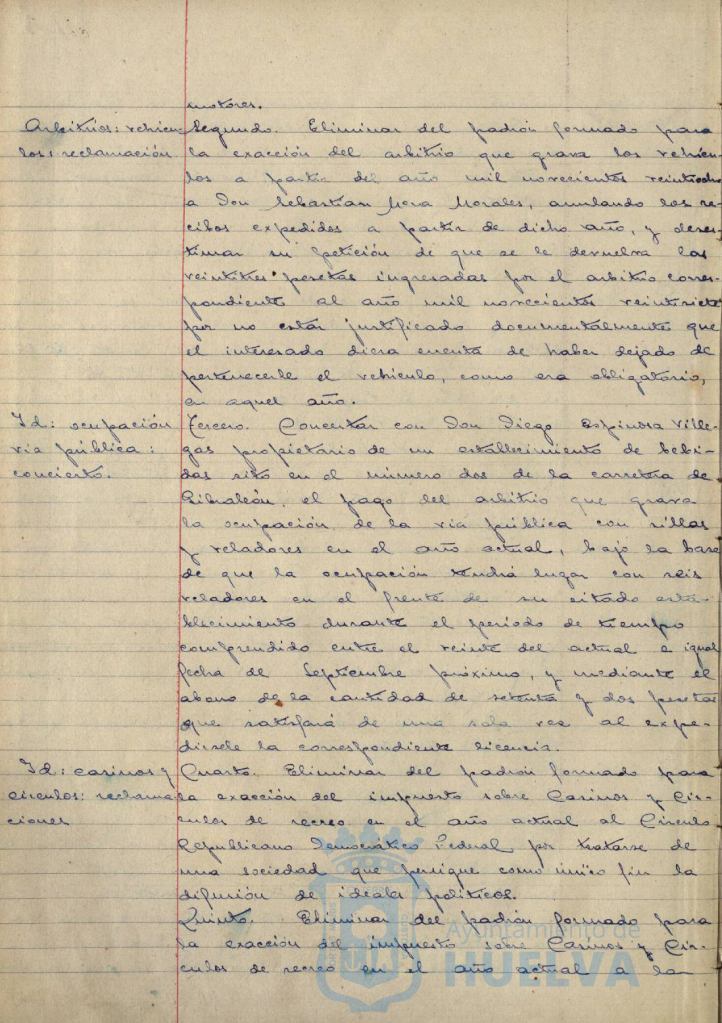 motores.
Arbitrios: vehicu- Segundo. Eliminar del padrón formado para
los: reclamación la exacción del arbitrio que grava los vehícu-
los a partir del año mil novecientos veintiocho
a Don Sebastián Mora Morales, anulando los re-
cibos expedidos a partir de dicho año, y deses-
timar su petición de que se le devuelva las
veintitres pesetas ingresadas por el arbitrio corres-
pondiente al año mil novecientos veintisiete
por no estar justificado documentalmente que
el interesado diera cuenta de haber dejado de
pertenecerle el vehículo, como era obligatorio,
en aquel año.
Id: ocupación Tercero. Concertar con Don Diego Espinosa Ville-
via pública: gas propietario de un establecimiento de bebi-
concierto. das sito en el número dos de la carretera de
Gibraleón, el pago del arbitrio que grava
la ocupación de la via pública con sillas
y veladores en el año actual, bajo la base
de que la ocupación tendrá lugar con seis
veladores en el frente de su citado esta-
blecimiento durante el período de tiempo
comprendido entre el veinte del actual e igual
fecha de Septiembre próximo, y mediante el
abono de la cantidad de setenta y dos pesetas
que satisfará de una sola vez al expe-
dirsele la correspondiente licencia.
Id: casinos y Cuarto. Eliminar del padrón formado para
círculos: reclama- la exacción del impuesto sobre Casinos y Cír-
ciones culos de recreo en el año actual al Círculo
Republicano Democrático Federal por tratarse de
una sociedad que persigue como único fin la
difusión de ideales políticos.
Quinto. Eliminar del padrón formado para
la exacción del impuesto sobre Casinos y Cír-
culos de recreo en el año actual a la
Ayuntamiento de
HUELVA